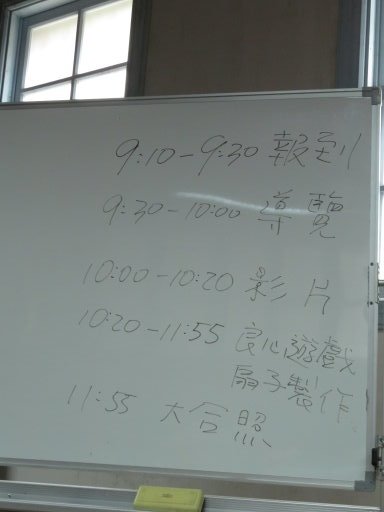 9:10-9:30 報到
9:30-10:00 導覽
10:00-10:20 影片
10:20-11:55 良心遊戲
扇子製作
11:55 大合照